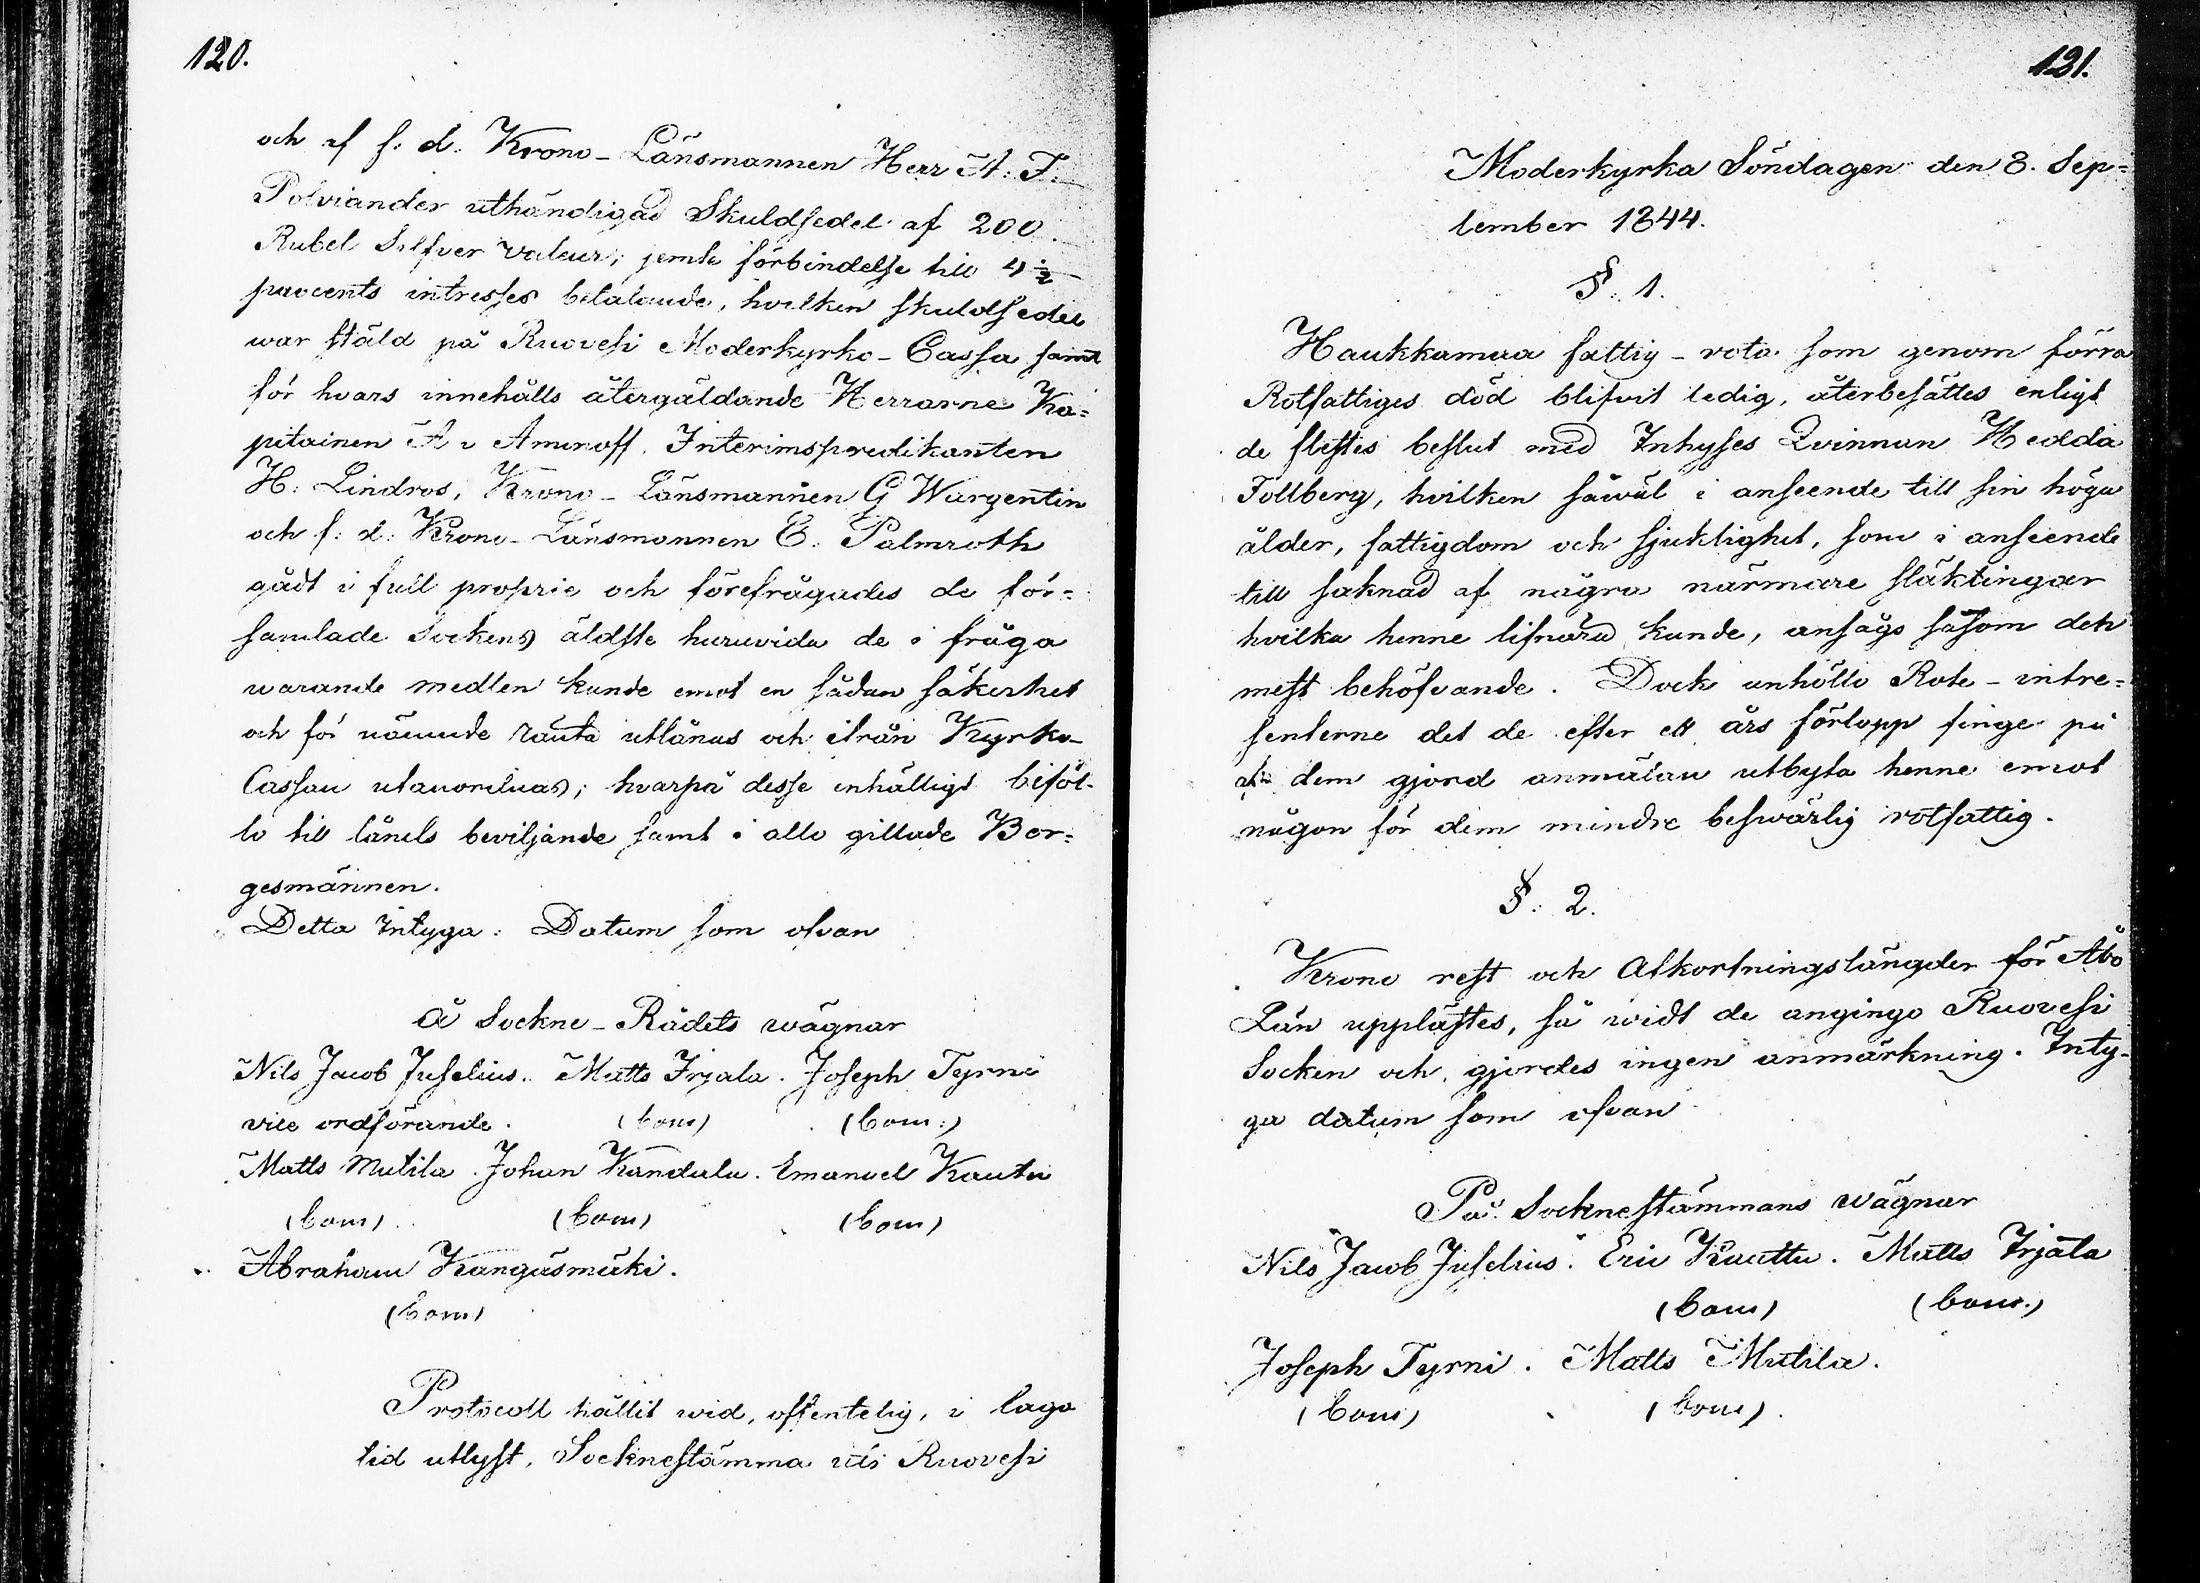 120.
och af f: d. Krono-Länsmannen Herr A: F:
Polviander uthändigad Skuldsedel af 200
Rubel Silfver valeur, jemte förbindelse till 4 1/2
procents intresses betalande, hvilken skuldsedel
war stäld på Ruovesi Moderkyrko-Cassa samt
för hvars innehålls återgäldande Herrarne Ka=
pitainen A v Aminoff, Interimspredikanten
H: Lindros, Krono-Länsmannen G Wargentin
och f: d: Krono-Länsmannen E. Palmroth
gådt i full proprie och förefrågades de för=
samlade Sockens äldste huruvida de i fråga
warande medlen kunde emot en sådan säkerhet
och för nämnde ränta utlånas och ifrån Kyrko-
Cassan utanordnas; hvarpå desse enhälligt biföl-
lo till lånets beviljande samt i allo gillade Bor=
gesmännen.
Detta Intyga: Datum som ofvan
å Sockne-Rådets wägnar
Nils Jacob Juselius. Matts Irjala. Joseph Tyrni
vice ordförande. (bom) (bom:)
Matts Mutila. Johan Kandala. Emanuel Kautu
(bom) (bom) (bom)
Abraham Kangasmäki.
(bom)
Protocoll hållit wid, offentelig, i laga
tid utlyst, Socknestämma uti Ruovesi
121.
Moderkyrka Söndagen den 8. Sep=
tember 1844.
§. 1.
Haukkamaa fattig-rota som genom förra
Rotfattiges död blifvit ledig, återbesattes enligt
de flestes beslut med Inhyses Qvinnan Hedda
Tollberg, hvilken såwäl i anseende till sin höga
ålder, fattigdom och sjuklighet, som i anseende
till saknad af några närmare släktingar
hvilka henne lifnära kunde, ansågs såsom den
mest behöfvande. Dock anhöllo Rote-intre=
senterne det de efter ett års förlopp finge på
af dem gjord anmälan utbyta henne emot
någon för dem mindre beswärlig rotfattig.
§: 2.
Krono rest och Afkortningslängder för Åbo
Län upplästes, så widt de angingo Ruovesi
Socken och gjordes ingen anmärkning. Inty-
ga datum som ofvan
På Socknestämmans wägnar
Nils Jacob Juselius. Eric Kauttu. Matts Irjala
(bom) (bom.)
Joseph Tyrni. Matts Mutila.
(bom) (bom).